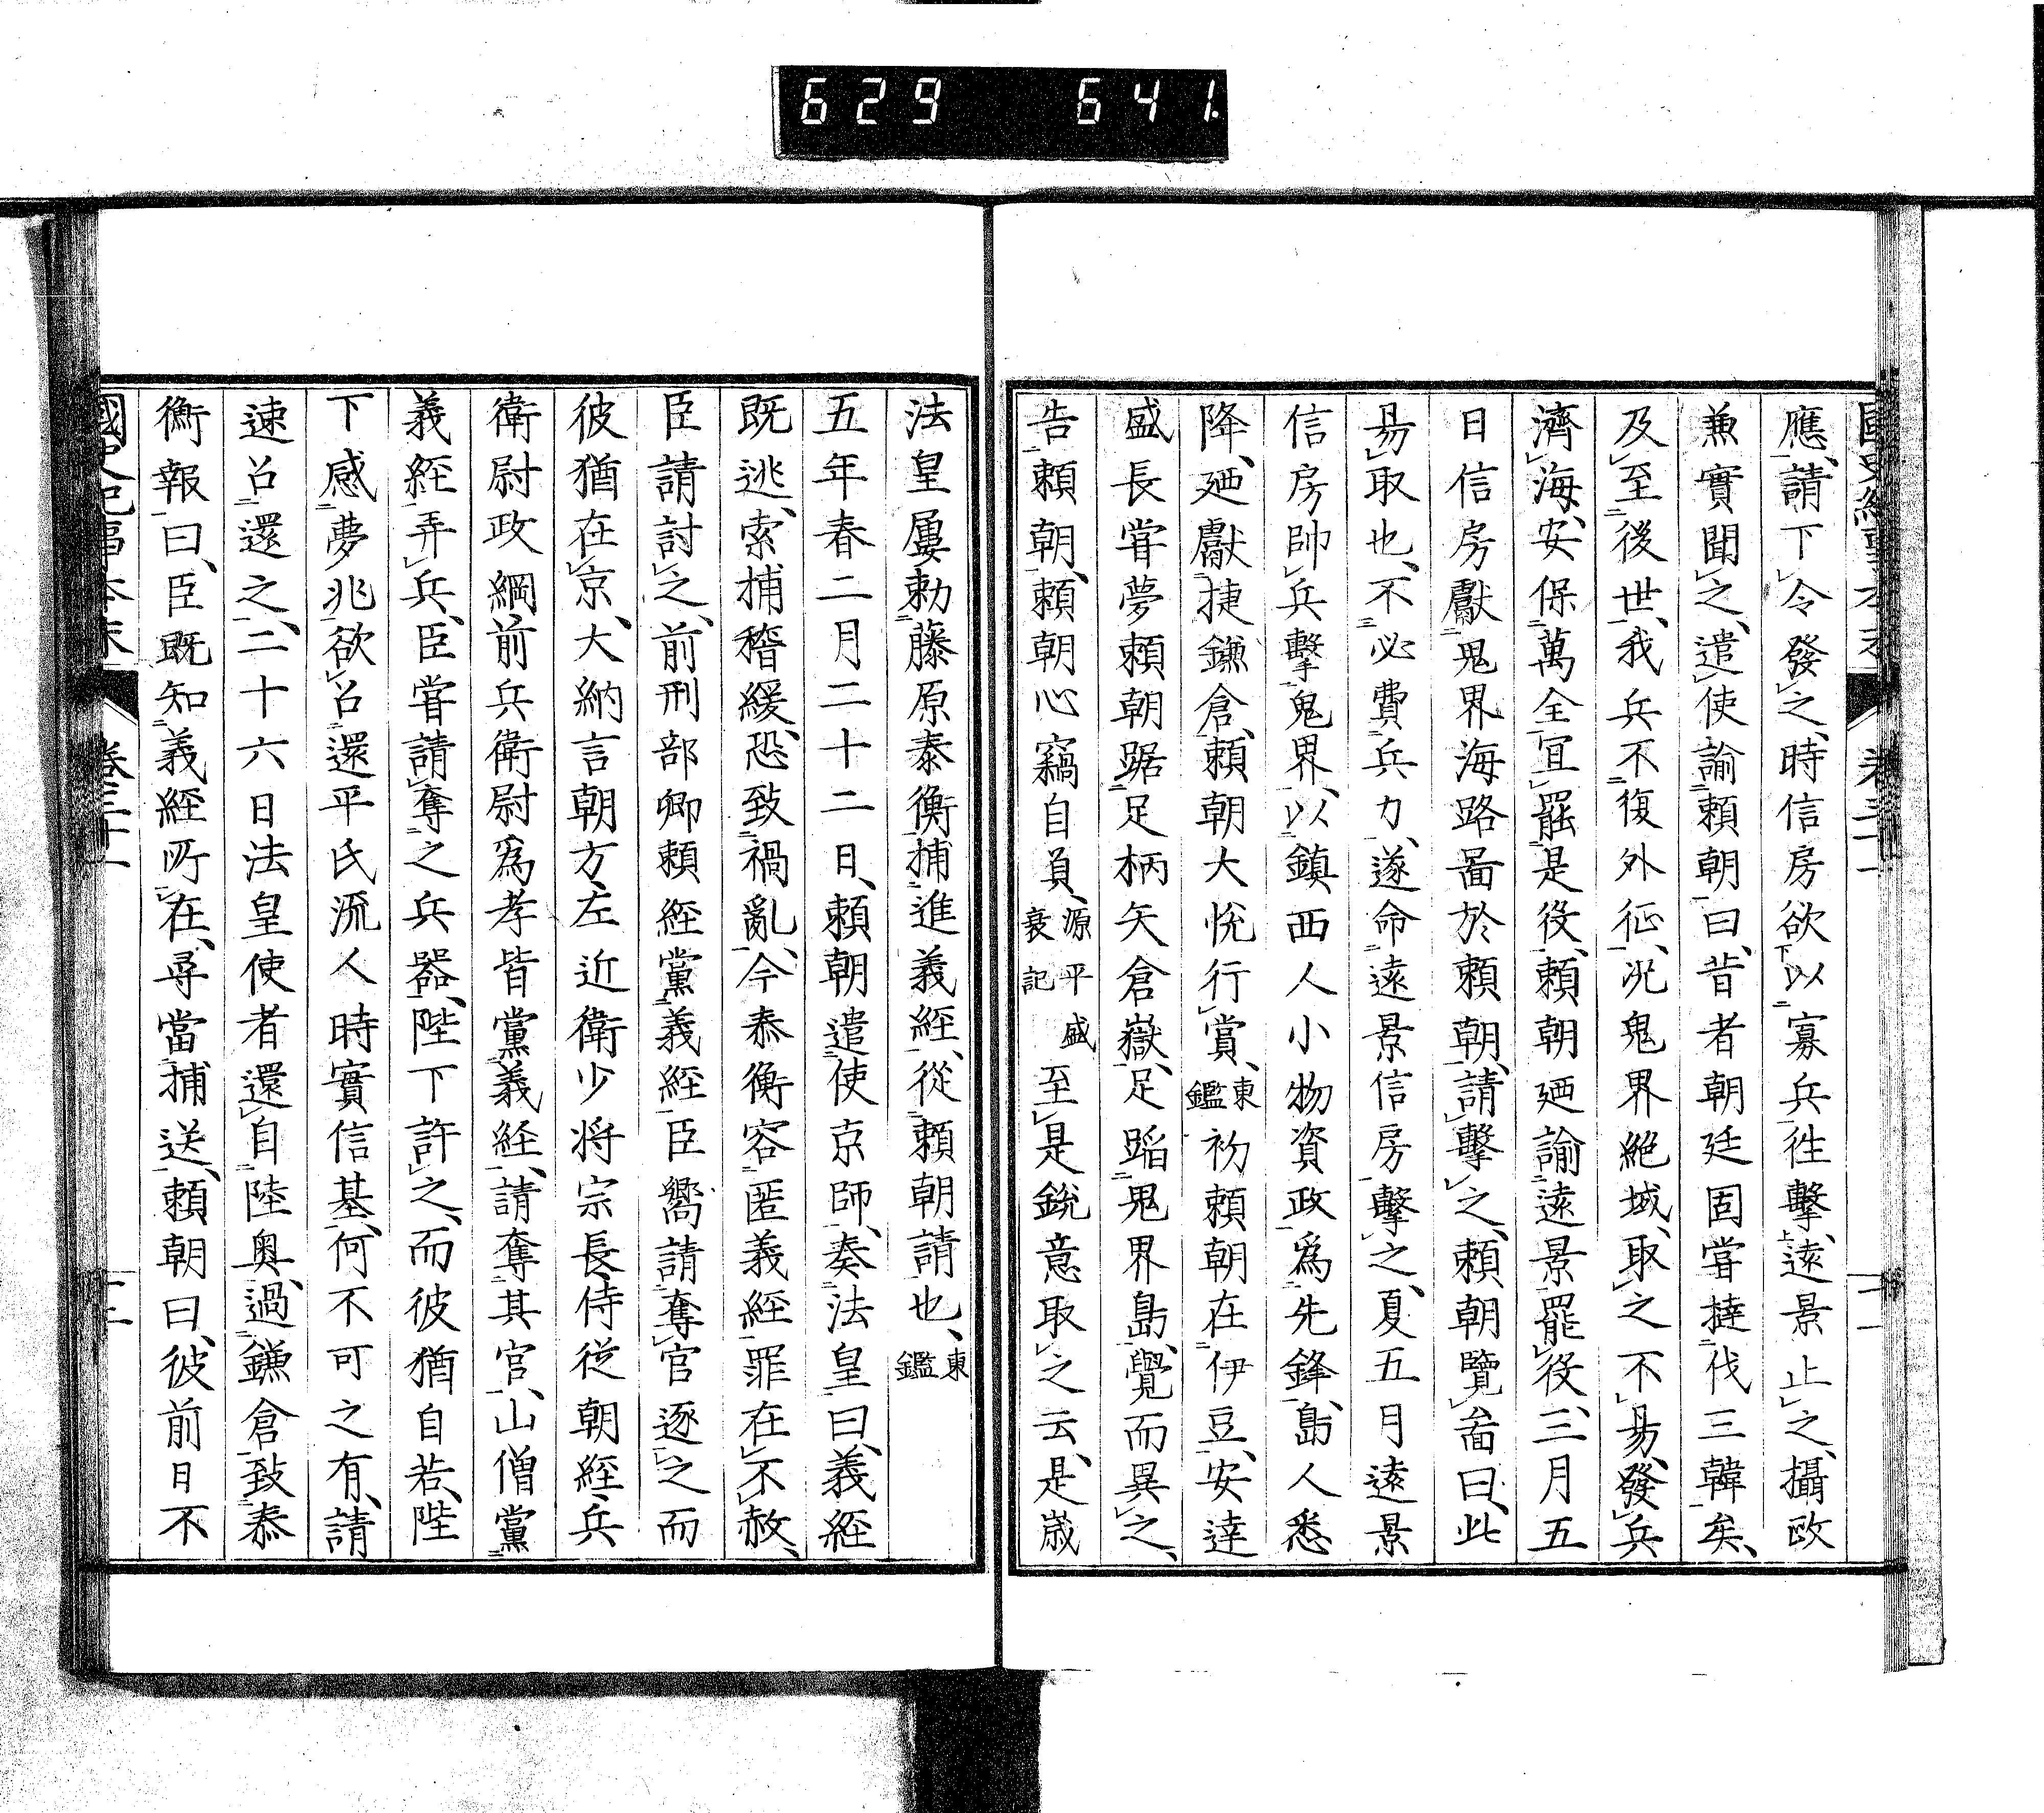 629 641.
應、請下令發之、時信房欲以寡兵往擊、遠景止之、攝政
兼實聞之、遣使諭賴朝曰、昔者朝廷固嘗撻伐三韓矣、
及至後世、我兵不復外征、況鬼界絶域、取之不易、發兵
濟海、安保萬全、宜罷是役、賴朝廼諭遠景罷役、三月五
日信房獻鬼界海路啚於賴朝、請擊之、賴朝覽啚曰、此
易取也、不必費兵力、遂命遠景信房擊之、夏五月遠景
信房帥兵擊鬼界、以鎮西人小物資政爲先鋒、島人悉
降、廼獻捷鎌倉、賴朝大悅行賞、東鑑初賴朝在伊豆、安達
盛長嘗夢賴朝踞足柄矢倉嶽、足蹈鬼界島、覺而異之、
告賴朝、賴朝心竊自負、源平盛衰記至是銳意取之云、是歲
法皇屢勅藤原泰衡捕進義經、從賴朝請也、東鑑
五年春二月二十二日、賴朝遣使京師、奏法皇曰、義經
既逃、索捕稽緩、恐致禍亂、今泰衡容匿義經罪在不赦、
臣請討之、前刑部卿賴經黨義經臣嚮請奪官逐之而
彼猶在京、大納言朝方、左近衛少将宗長、侍從朝經、兵
衛尉政綱前兵衛尉爲孝皆黨義經、請奪其官、山僧黨
義經弄兵、臣嘗請奪之兵器、陛下許之、而彼猶自若、陛
下感夢兆欲召還平氏流人時實信基、何不可之有、請
速召還之、二十六日法皇使者還自陸奥、過鎌倉致泰
衡報曰、臣既知義經所在、尋當捕送、賴朝曰、彼前日不
國史紀事本末 卷三十一